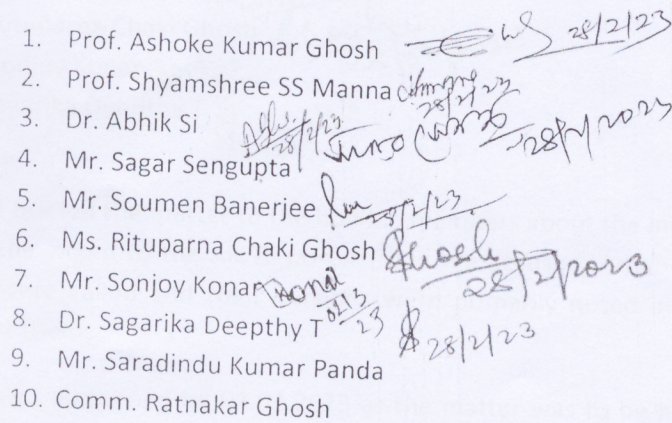 1. Prof. Ashoke Kumar Ghosh 28/2/23
2. Prof. Shyamshree SS Manna 28/2/23
3. Dr. Abhik Si 28/2/23
4. Mr. Sagar Sengupta 28/2/2023
5. Mr. Soumen Banerjee 28/2/23
6. Ms. Rituparna Chaki Ghosh Ghosh 28/2/2023
7. Mr. Sonjoy Konar Konar 02/3/23
8. Dr. Sagarika Deepthy T 28/2/23
9. Mr. Saradindu Kumar Panda
10. Comm. Ratnakar Ghosh